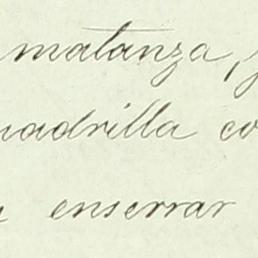 matanza,
uadrilla co
enserrar